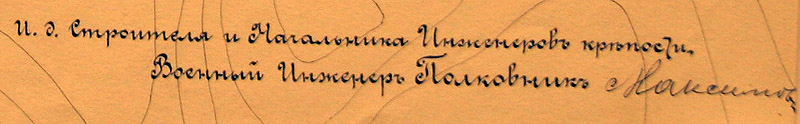 И. д. Строителя и Начальника Инженеровъ крѣпости,
Военный Инженеръ Полковникъ Максимовъ